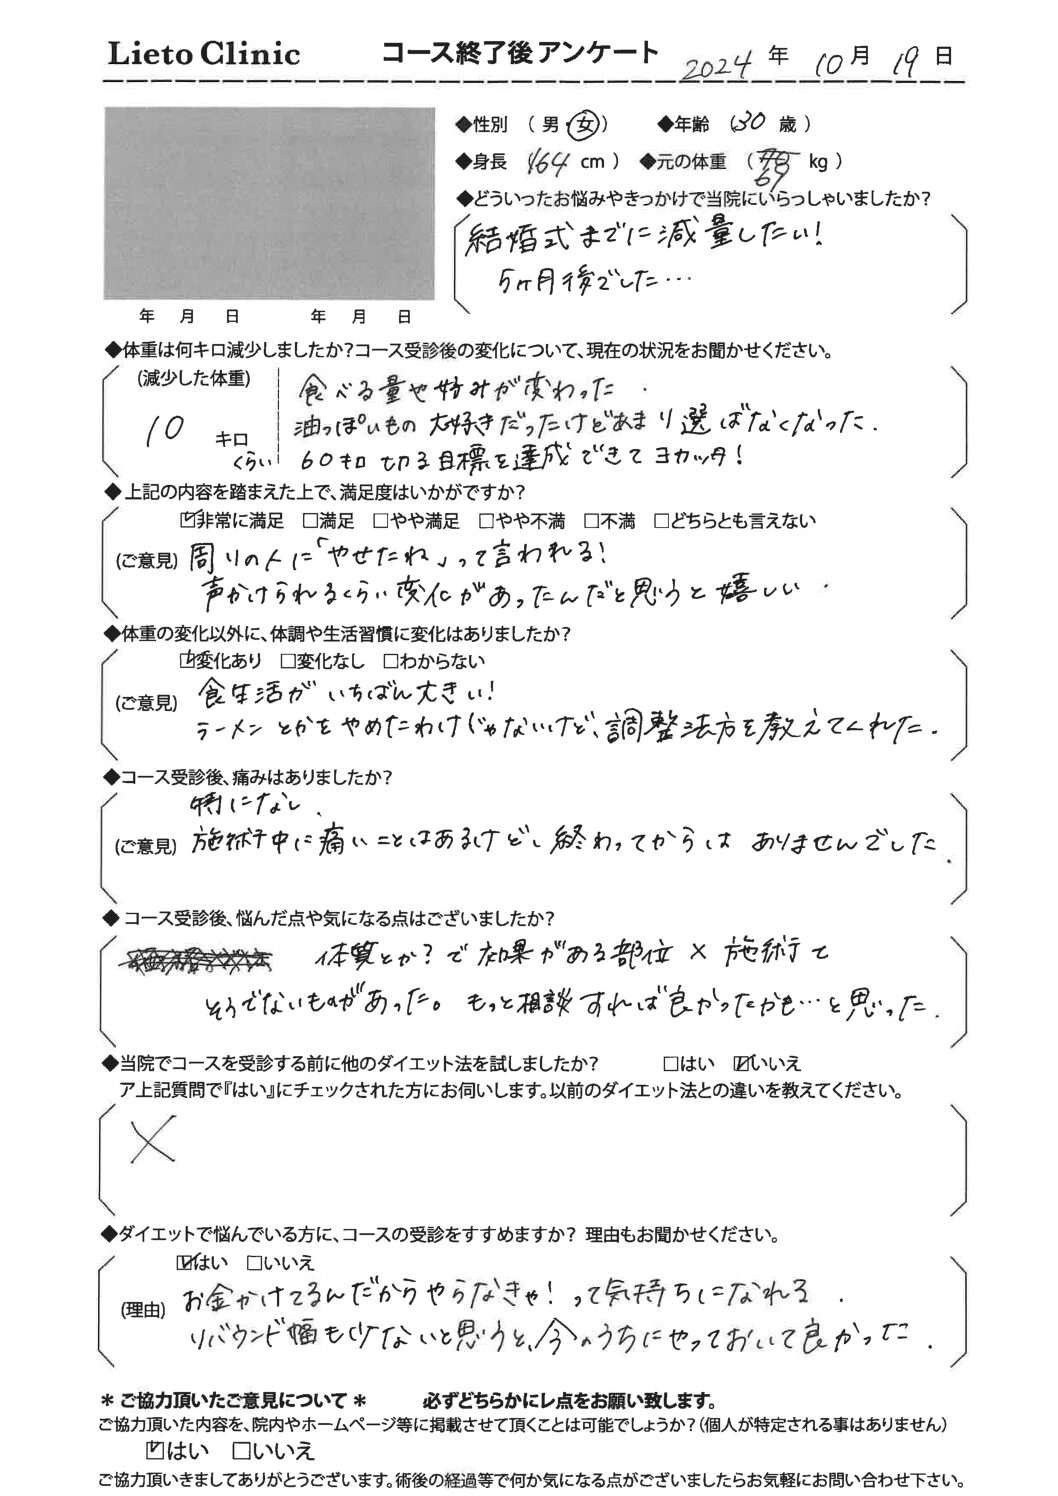 Lieto Clinic コース終了後アンケート 2024 年 10 月 19 日
◆性別 ( 男・女 ) ◆年齢 ( 30 歳 )
◆身長 164 cm ) ◆元の体重 ( 69 kg )
◆どういったお悩みやきっかけで当院にいらっしゃいましたか?
結婚式までに減量したい!
5ヶ月後でした…
年 月 日 年 月 日
◆体重は何キロ減少しましたか?コース受診後の変化について、現在の状況をお聞かせください。
(減少した体重) 食べる量や好みが変わった.
10 キロ 油っぽいもの大好きだったけどあまり選ばなくなった.
くらい 60キロ切る目標を達成できてヨカッタ!
◆ 上記の内容を踏まえた上で、満足度はいかがですか?
☑非常に満足 □満足 □やや満足 □やや不満 □不満 □どちらとも言えない
(ご意見) 周りの人に「やせたね」って言われる!
声かけられるくらい変化があったんだと思うと嬉しい.
◆体重の変化以外に、体調や生活習慣に変化はありましたか?
☑変化あり □変化なし □わからない
(ご意見) 食生活がいちばん大きい!
ラーメンとかをやめたわけじゃないけど、調整法方を教えてくれた.
◆コース受診後、痛みはありましたか?
特になし.
(ご意見) 施術中に痛いことはあるけど、終わってからは ありませんでした.
◆ コース受診後、悩んだ点や気になる点はございましたか?
体質とか?で効果がある部位×施術と
そうでないものがあった。もっと相談すれば良かったかも…と思った.
◆当院でコースを受診する前に他のダイエット法を試しましたか? □はい ☑いいえ
ア上記質問で『はい』にチェックされた方にお伺いします。以前のダイエット法との違いを教えてください。
×
◆ダイエットで悩んでいる方に、コースの受診をすすめますか? 理由もお聞かせください。
☑はい □いいえ
(理由) お金かけてるんだからやらなきゃ!って気持ちになれる.
リバウンド幅も少ないと思うと、今のうちにやっておいて良かった.
＊ご協力頂いたご意見について＊ 必ずどちらかにレ点をお願い致します。
ご協力頂いた内容を、院内やホームページ等に掲載させて頂くことは可能でしょうか?(個人が特定される事はありません)
☑はい □いいえ
ご協力頂いきましてありがとうございます。術後の経過等で何か気になる点がございましたらお気軽にお問い合わせ下さい。